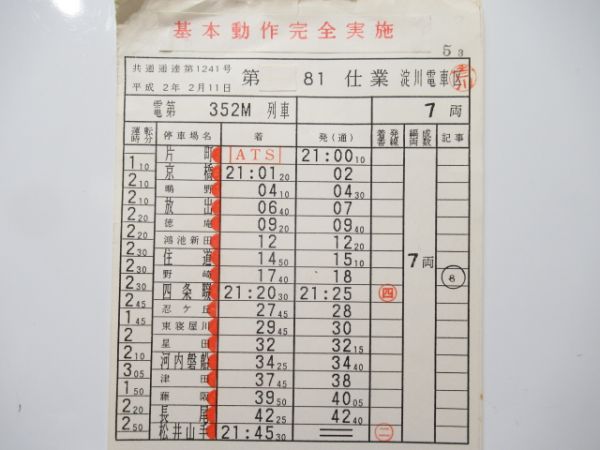 基本動作完全実施
53
共通通達第1241号
平成 2年 2月11日
第 81 仕業 淀川電車区
電第 352M 列車 7 両
運転時分 停車場名 着 発(通) 着発番線 編成両数 記事
片町 ATS 21:00 10
1 10
京橋 21:01 20 02
2 10
鴫野 04 10 04 30
2 10
放出 06 40 07
2 20
徳庵 09 20 09 40
2 20
鴻池新田 12 12 20
2 30
住道 14 50 15 10 7両
2 30
野崎 17 40 18 6
2 30
四条畷 21:20 30 21:25 四
2 45
忍ケ丘 27 45 28
1 45
東寝屋川 29 45 30
2
星田 32 32 15
2 10
河内磐船 34 25 34 40
3 05
津田 37 45 38
1 50
藤阪 39 50 40 05
2 20
長尾 42 25 42 40
2 50
松井山手 21:45 30 二